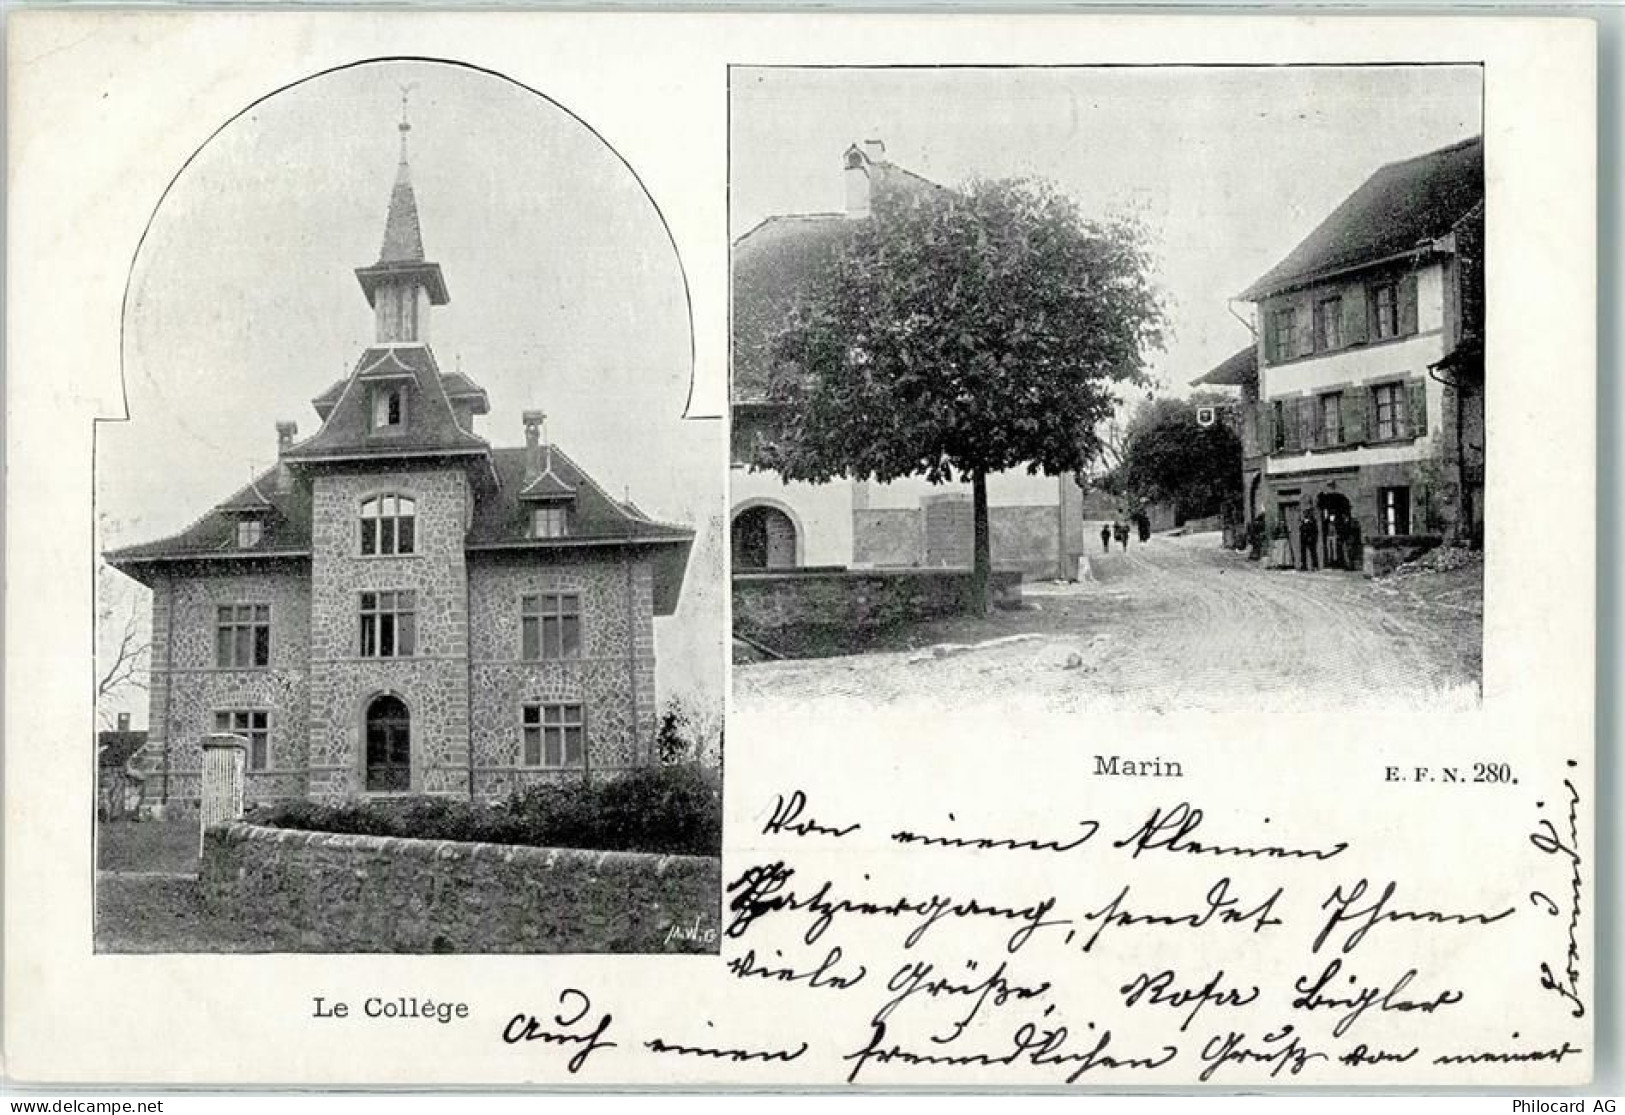 Le Collége
Marin
E. F. N. 280.
Von einem Kleinen
Spatziergang, sendet Ihnen
viele Grüße, Rosa Bigler
Auch einen freundlichen Gruß von meiner
Freundin.
M.W.G
delcampe.net
Philocard AG